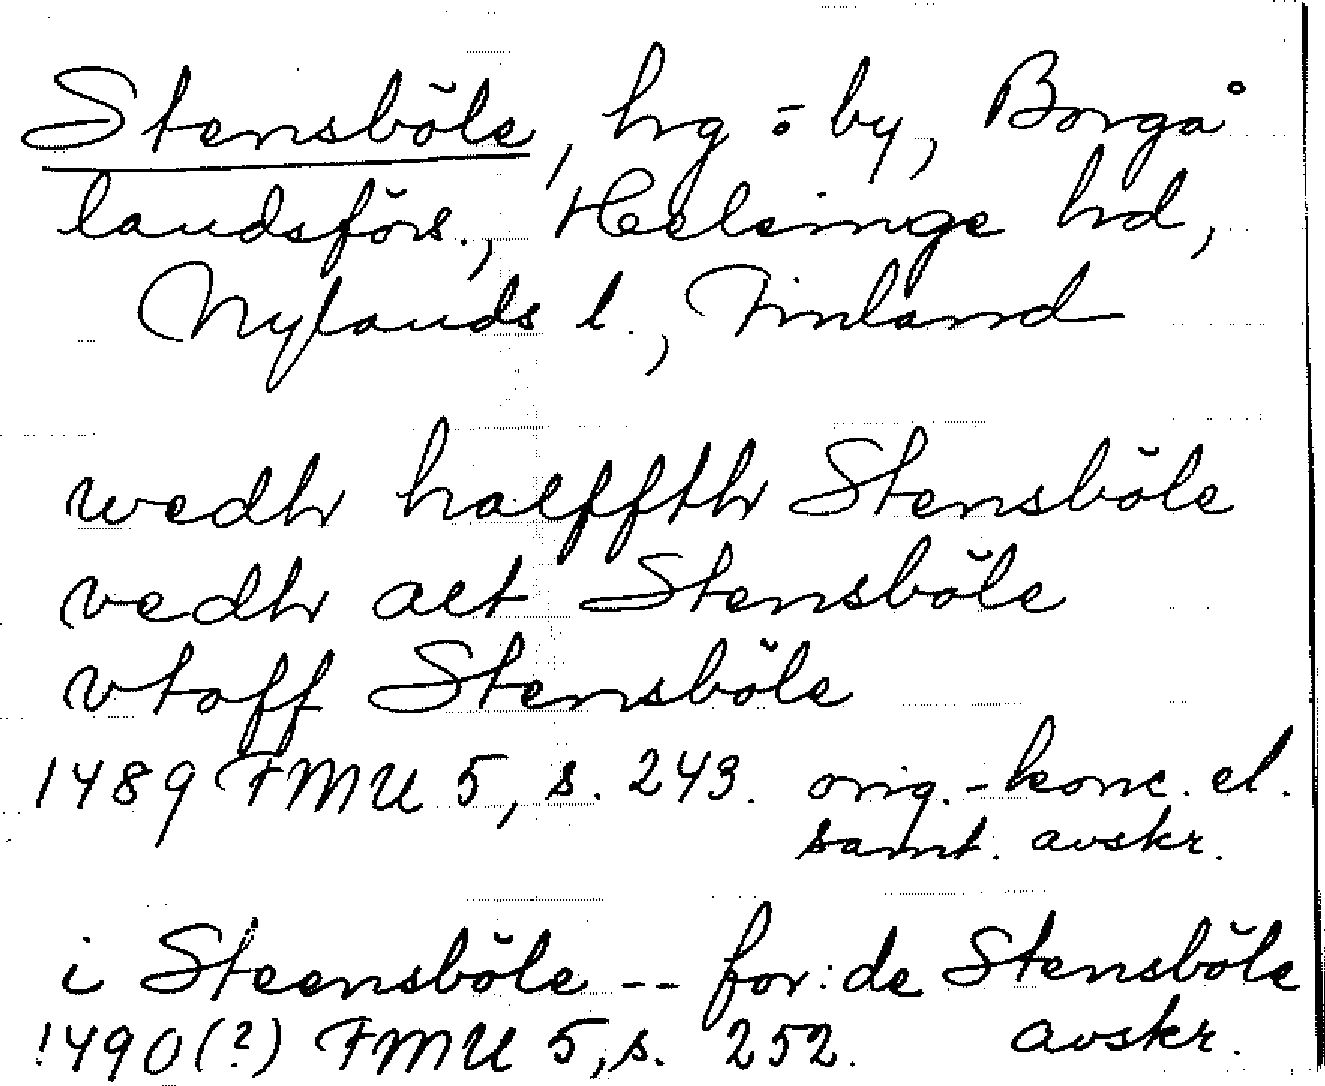 Stensböle, hrg o by, Borgå
landsförs., Helsinge hrd,
Nylands l., Finland
wedhr halffthr Stensböle
vedhr alt Stensböle
vtaff Stensböle
1489 FMU 5, s. 243. orig.-konc. el.
samt. avskr.
i Steensböle -- for:de Stensböle
1490(?) FMU 5, s. 252. avskr.